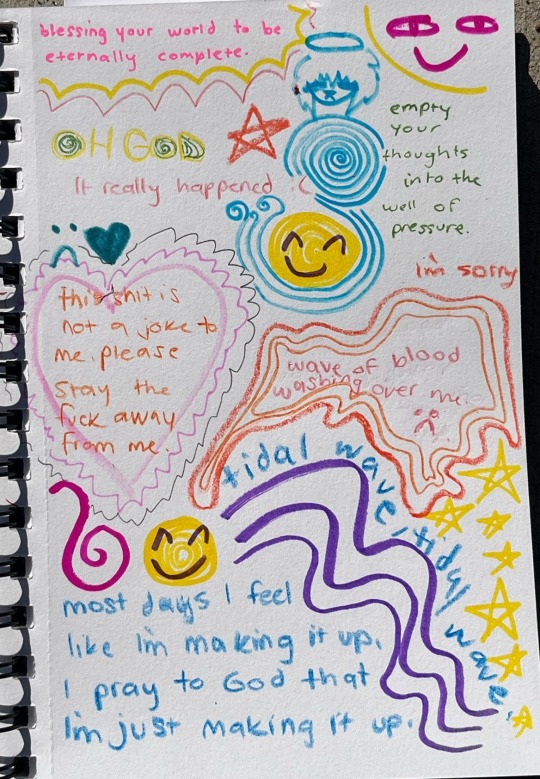 blessing your world to be
eternally complete.
OH GOD
It really happened :(
empty
your
thoughts
into the
well of
pressure.
i'm sorry
this shit is
not a joke to
me. please
stay the
fuck away
from me.
wave of blood
washing over me.
tidal wave, tidal wave.
most days I feel
like I'm making it up.
I pray to God that
I'm just making it up.